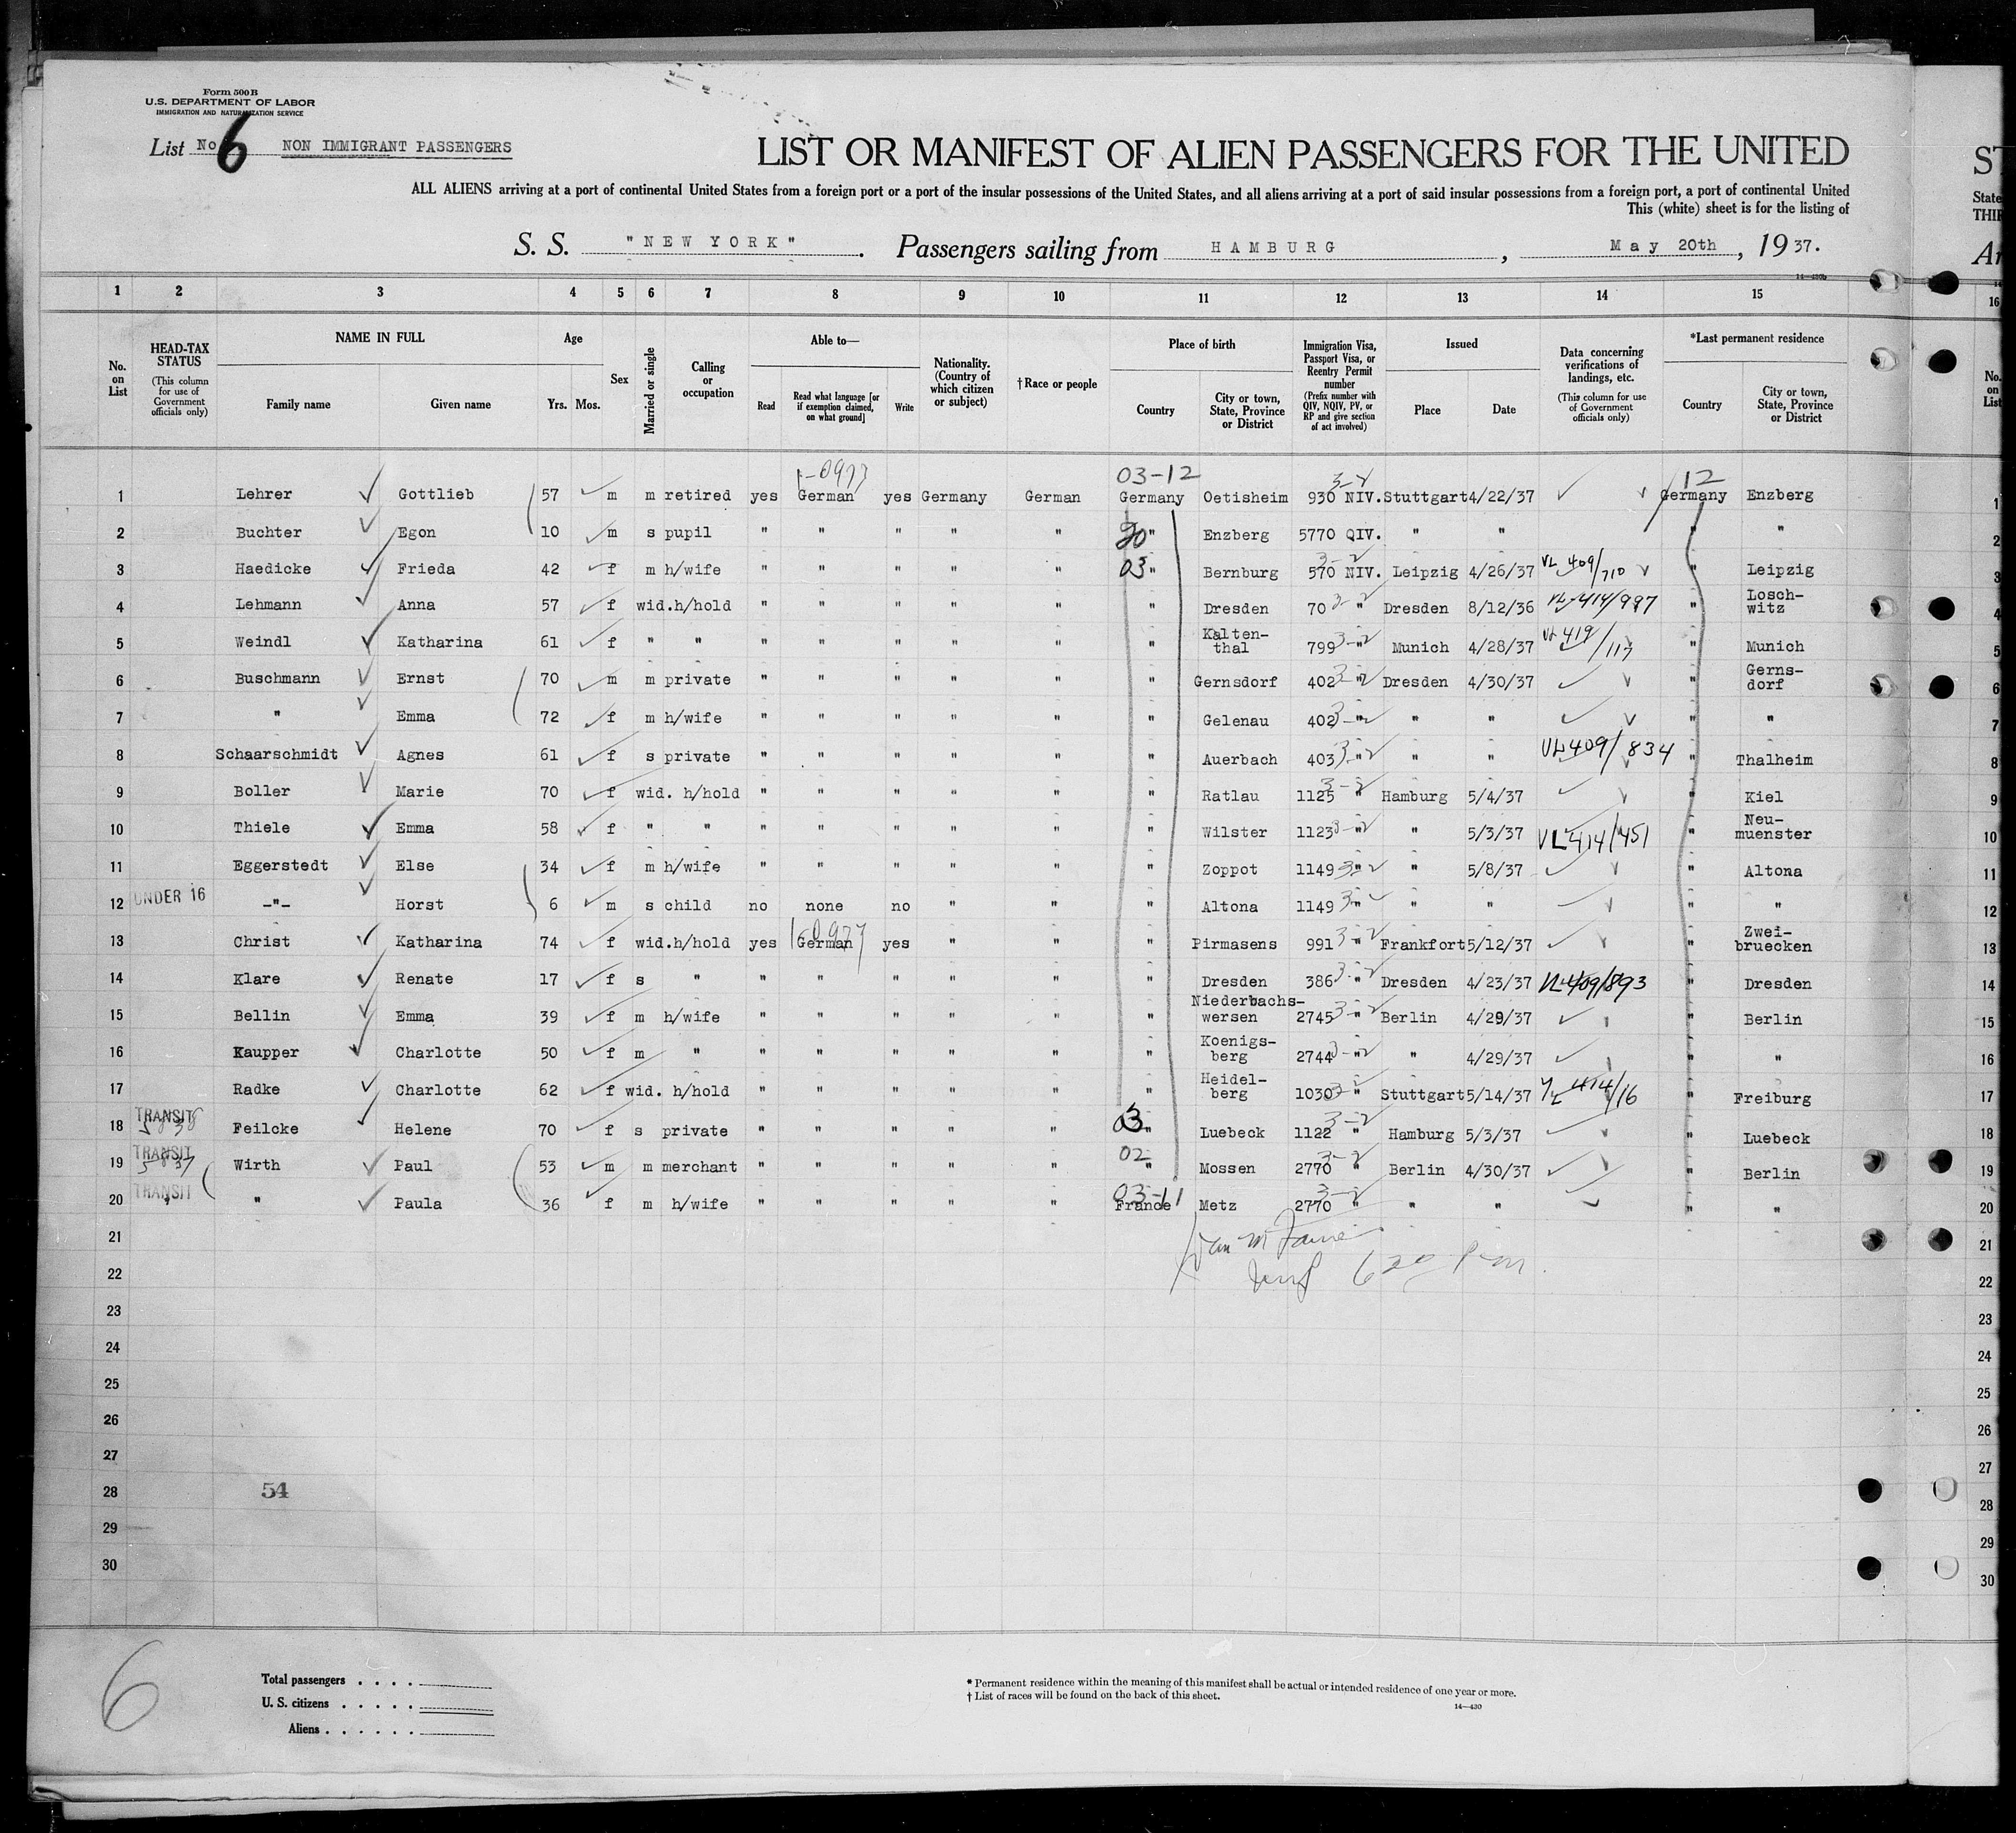 Form 500 B
U.S. DEPARTMENT OF LABOR
IMMIGRATION AND NATURALIZATION SERVICE
List No 6 NON IMMIGRANT PASSENGERS
LIST OR MANIFEST OF ALIEN PASSENGERS FOR THE UNITED
ALL ALIENS arriving at a port of continental United States from a foreign port or a port of the insular possessions of the United States, and all aliens arriving at a port of said insular possessions from a foreign port, a port of continental United
This (white) sheet is for the listing of
S. S. "NEW YORK" . Passengers sailing from HAMBURG , May 20th , 1937.
1 2 3 4 5 6 7 8 9 10 11 12 13 14 15
No. on List
HEAD-TAX STATUS
(This column for use of Government officials only)
NAME IN FULL
Family name Given name
Age
Yrs. Mos.
Sex
Married or single
Calling or occupation
Able to—
Read
Read what language [or if exemption claimed, on what ground]
Write
Nationality. (Country of which citizen or subject)
† Race or people
Place of birth
Country
City or town, State, Province or District
Immigration Visa, Passport Visa, or Reentry Permit number
(Prefix number with QIV, NQIV, PV, or RP and give section of act involved)
Issued
Place Date
Data concerning verifications of landings, etc.
(This column for use of Government officials only)
*Last permanent residence
Country
City or town, State, Province or District
03-12 3-2 12
1 Lehrer Gottlieb 57 m m retired yes German yes Germany German Germany Oetisheim 930 NIV. Stuttgart 4/22/37 Germany Enzberg
2 Buchter Egon 10 m s pupil " " " " " 20 " Enzberg 5770 QIV. " " " "
3 Haedicke Frieda 42 f m h/wife " " " " " 03 " Bernburg 570 3-2 NIV. Leipzig 4/26/37 VL 409/710 " Leipzig
4 Lehmann Anna 57 f wid. h/hold " " " " " " Dresden 70 3-2 " Dresden 8/12/36 VL 414/997 " Loschwitz
5 Weindl Katharina 61 f " " " " " " " " Kalten-thal 799 3-2 " Munich 4/28/37 VL 419/117 " Munich
6 Buschmann Ernst 70 m m private " " " " " " Gernsdorf 402 3-2 " Dresden 4/30/37 " Gerns-dorf
7 " Emma 72 f m h/wife " " " " " " Gelenau 402 3-2 " " " " "
8 Schaarschmidt Agnes 61 f s private " " " " " " Auerbach 403 3-2 " " " VL 409/834 " Thalheim
9 Boller Marie 70 f wid. h/hold " " " " " " Ratlau 1125 3-2 " Hamburg 5/4/37 " Kiel
10 Thiele Emma 58 f " " " " " " " " Wilster 1123 3-2 " " 5/3/37 VL 414/451 " Neu-muenster
11 Eggerstedt Else 34 f m h/wife " " " " " " Zoppot 1149 3-2 " " 5/8/37 " Altona
12 UNDER 16 -"- Horst 6 m s child no none no " " " Altona 1149 3-2 " " " " "
13 Christ Katharina 74 f wid. h/hold yes German yes " " " Pirmasens 991 3-2 " Frankfort 5/12/37 " Zwei-bruecken
14 Klare Renate 17 f s " " " " " " " Dresden 386 3-2 " Dresden 4/23/37 VL 409/893 " Dresden
15 Bellin Emma 39 f m h/wife " " " " " " Niederbachs-wersen 2745 3-2 " Berlin 4/29/37 " Berlin
16 Kaupper Charlotte 50 f m " " " " " " " Koenigs-berg 2744 3-2 " " 4/29/37 " "
17 Radke Charlotte 62 f wid. h/hold " " " " " " Heidel-berg 1030 3-2 " Stuttgart 5/14/37 VL 414/16 " Freiburg
18 TRANSIT Feilcke Helene 70 f s private " " " " " 03 " Luebeck 1122 3-2 " Hamburg 5/3/37 " Luebeck
19 TRANSIT Wirth Paul 53 m m merchant " " " " " 02 " Mossen 2770 3-2 " Berlin 4/30/37 " Berlin
20 TRANSIT " " Paula 36 f m h/wife " " " " " 03-11 France Metz 2770 3-2 " " " " "
21
22
23
24
25
26
27
28 54
29
30
6
Total passengers
U. S. citizens
Aliens
* Permanent residence within the meaning of this manifest shall be actual or intended residence of one year or more.
† List of races will be found on the back of this sheet.
14—430